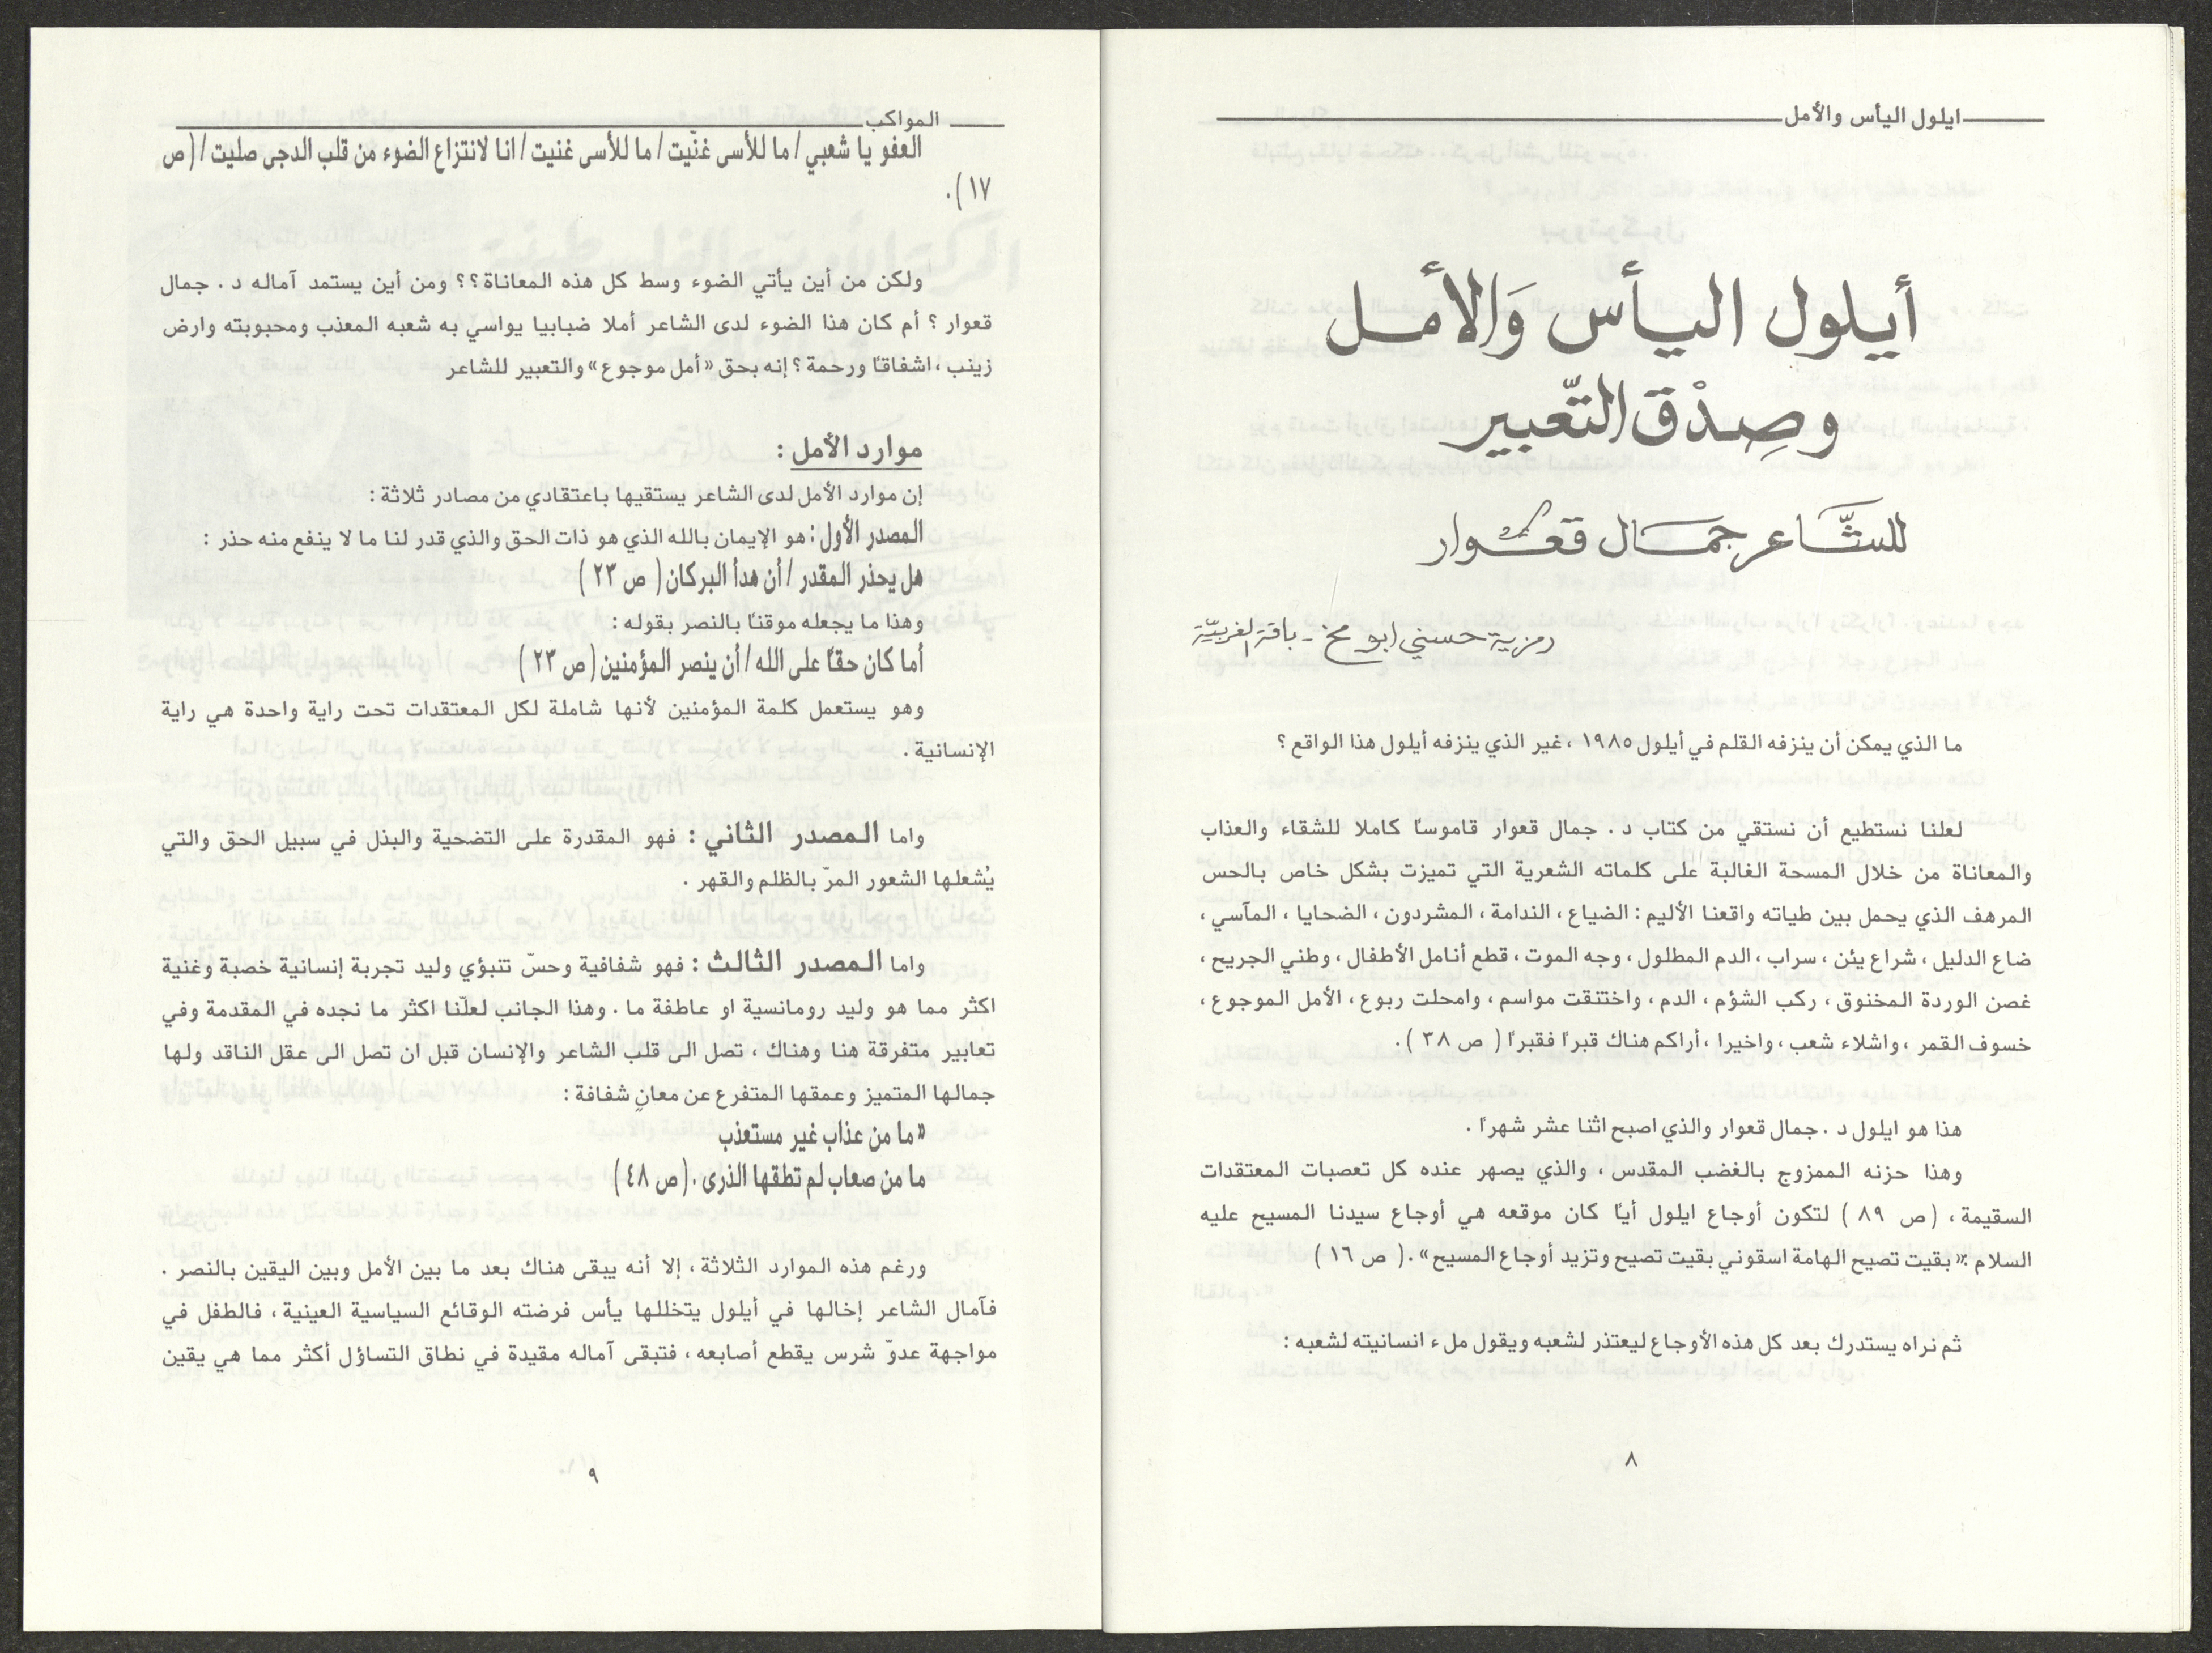 ايلول اليأس والأمل
أيلول اليأس وَالأمل
وصِدْق التّعبير
للشَّاعر جمَال قعوار
رمزية حسني ابو مخ - باقة الغربيّة
ما الذي يمكن أن ينزفه القلم في أيلول ١٩٨٥ ، غير الذي ينزفه أيلول هذا الواقع ؟
لعلنا نستطيع أن نستقي من كتاب د . جمال قعوار قاموسًا كاملا للشقاء والعذاب
والمعاناة من خلال المسحة الغالبة على كلماته الشعرية التي تميزت بشكل خاص بالحس
المرهف الذي يحمل بين طياته واقعنا الأليم : الضياع ، الندامة ، المشردون ، الضحايا ، المآسي ،
ضاع الدليل ، شراع يئن ، سراب ، الدم المطلول ، وجه الموت ، قطع أنامل الأطفال ، وطني الجريح ،
غصن الوردة المخنوق ، ركب الشؤم ، الدم ، واختنقت مواسم ، وامحلت ربوع ، الأمل الموجوع ،
خسوف القمر ، واشلاء شعب ، واخيرا ، أراكم هناك قبرًا فقبرًا ( ص ٣٨ ) .
هذا هو ايلول د . جمال قعوار والذي اصبح اثنا عشر شهرًا .
وهذا حزنه الممزوج بالغضب المقدس ، والذي يصهر عنده كل تعصبات المعتقدات
السقيمة ، (ص ٨٩ ) لتكون أوجاع ايلول أيًا كان موقعه هي أوجاع سيدنا المسيح عليه
السلام : « بقيت تصيح الهامة اسقوني بقيت تصيح وتزيد أوجاع المسيح » . ( ص ١٦ )
ثم نراه يستدرك بعد كل هذه الأوجاع ليعتذر لشعبه ويقول ملء انسانيته لشعبه :
٨
المواكب
العفو يا شعبي / ما للأسى غنّيت / ما للأسى غنيت / انا لانتزاع الضوء من قلب الدجى صليت / ( ص
١٧ ) .
ولكن من أين يأتي الضوء وسط كل هذه المعاناة ؟؟ ومن أين يستمد آماله د . جمال
قعوار ؟ أم كان هذا الضوء لدى الشاعر أملا ضبابيا يواسي به شعبه المعذب ومحبوبته وارض
زينب ، اشفاقًا ورحمة ؟ إنه بحق « أمل موجوع » والتعبير للشاعر
موارد الأمل :
إن موارد الأمل لدى الشاعر يستقيها باعتقادي من مصادر ثلاثة :
المصدر الأول : هو الإيمان بالله الذي هو ذات الحق والذي قدر لنا ما لا ينفع منه حذر :
هل يحذر المقدر / أن هدأ البركان ( ص ٢٣ )
وهذا ما يجعله موقنًا بالنصر بقوله :
أما كان حقًا على الله / أن ينصر المؤمنين ( ص ٢٣ )
وهو يستعمل كلمة المؤمنين لأنها شاملة لكل المعتقدات تحت راية واحدة هي راية
الإنسانية .
واما المصدر الثاني : فهو المقدرة على التضحية والبذل في سبيل الحق والتي
يُشعلها الشعور المرّ بالظلم والقهر .
واما المصدر الثالث : فهو شفافية وحسّ تنبؤي وليد تجربة إنسانية خصبة وغنية
اكثر مما هو وليد رومانسية او عاطفة ما . وهذا الجانب لعلّنا اكثر ما نجده في المقدمة وفي
تعابير متفرقة هنا وهناك ، تصل الى قلب الشاعر والإنسان قبل ان تصل الى عقل الناقد ولها
جمالها المتميز وعمقها المتفرع عن معانٍ شفافة :
« ما من عذاب غير مستعذب
ما من صعاب لم تطقها الذرى . ( ص ٤٨ )
ورغم هذه الموارد الثلاثة ، إلا أنه يبقى هناك بعد ما بين الأمل وبين اليقين بالنصر .
فآمال الشاعر إخالها في أيلول يتخللها يأس فرضته الوقائع السياسية العينية ، فالطفل في
مواجهة عدوّ شرس يقطع أصابعه ، فتبقى آماله مقيدة في نطاق التساؤل أكثر مما هي يقين
٩